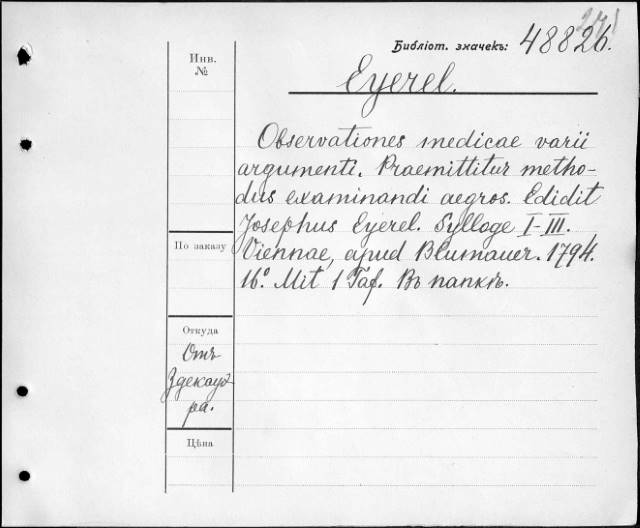 271
Библіот. значекъ: 48826.
Инв.
№
Eyerel.
Observationes medicae varii
argumenti. Praemittitur metho-
dus examinandi aegros. Edidit
Josephus Eyerel. Sylloge I-III.
Viennae, apud Blumauer. 1794.
16.° Mit 1 Taf. Въ папкѣ.
По заказу
Откуда
Отъ
Здекауэ-
ра.
Цѣна